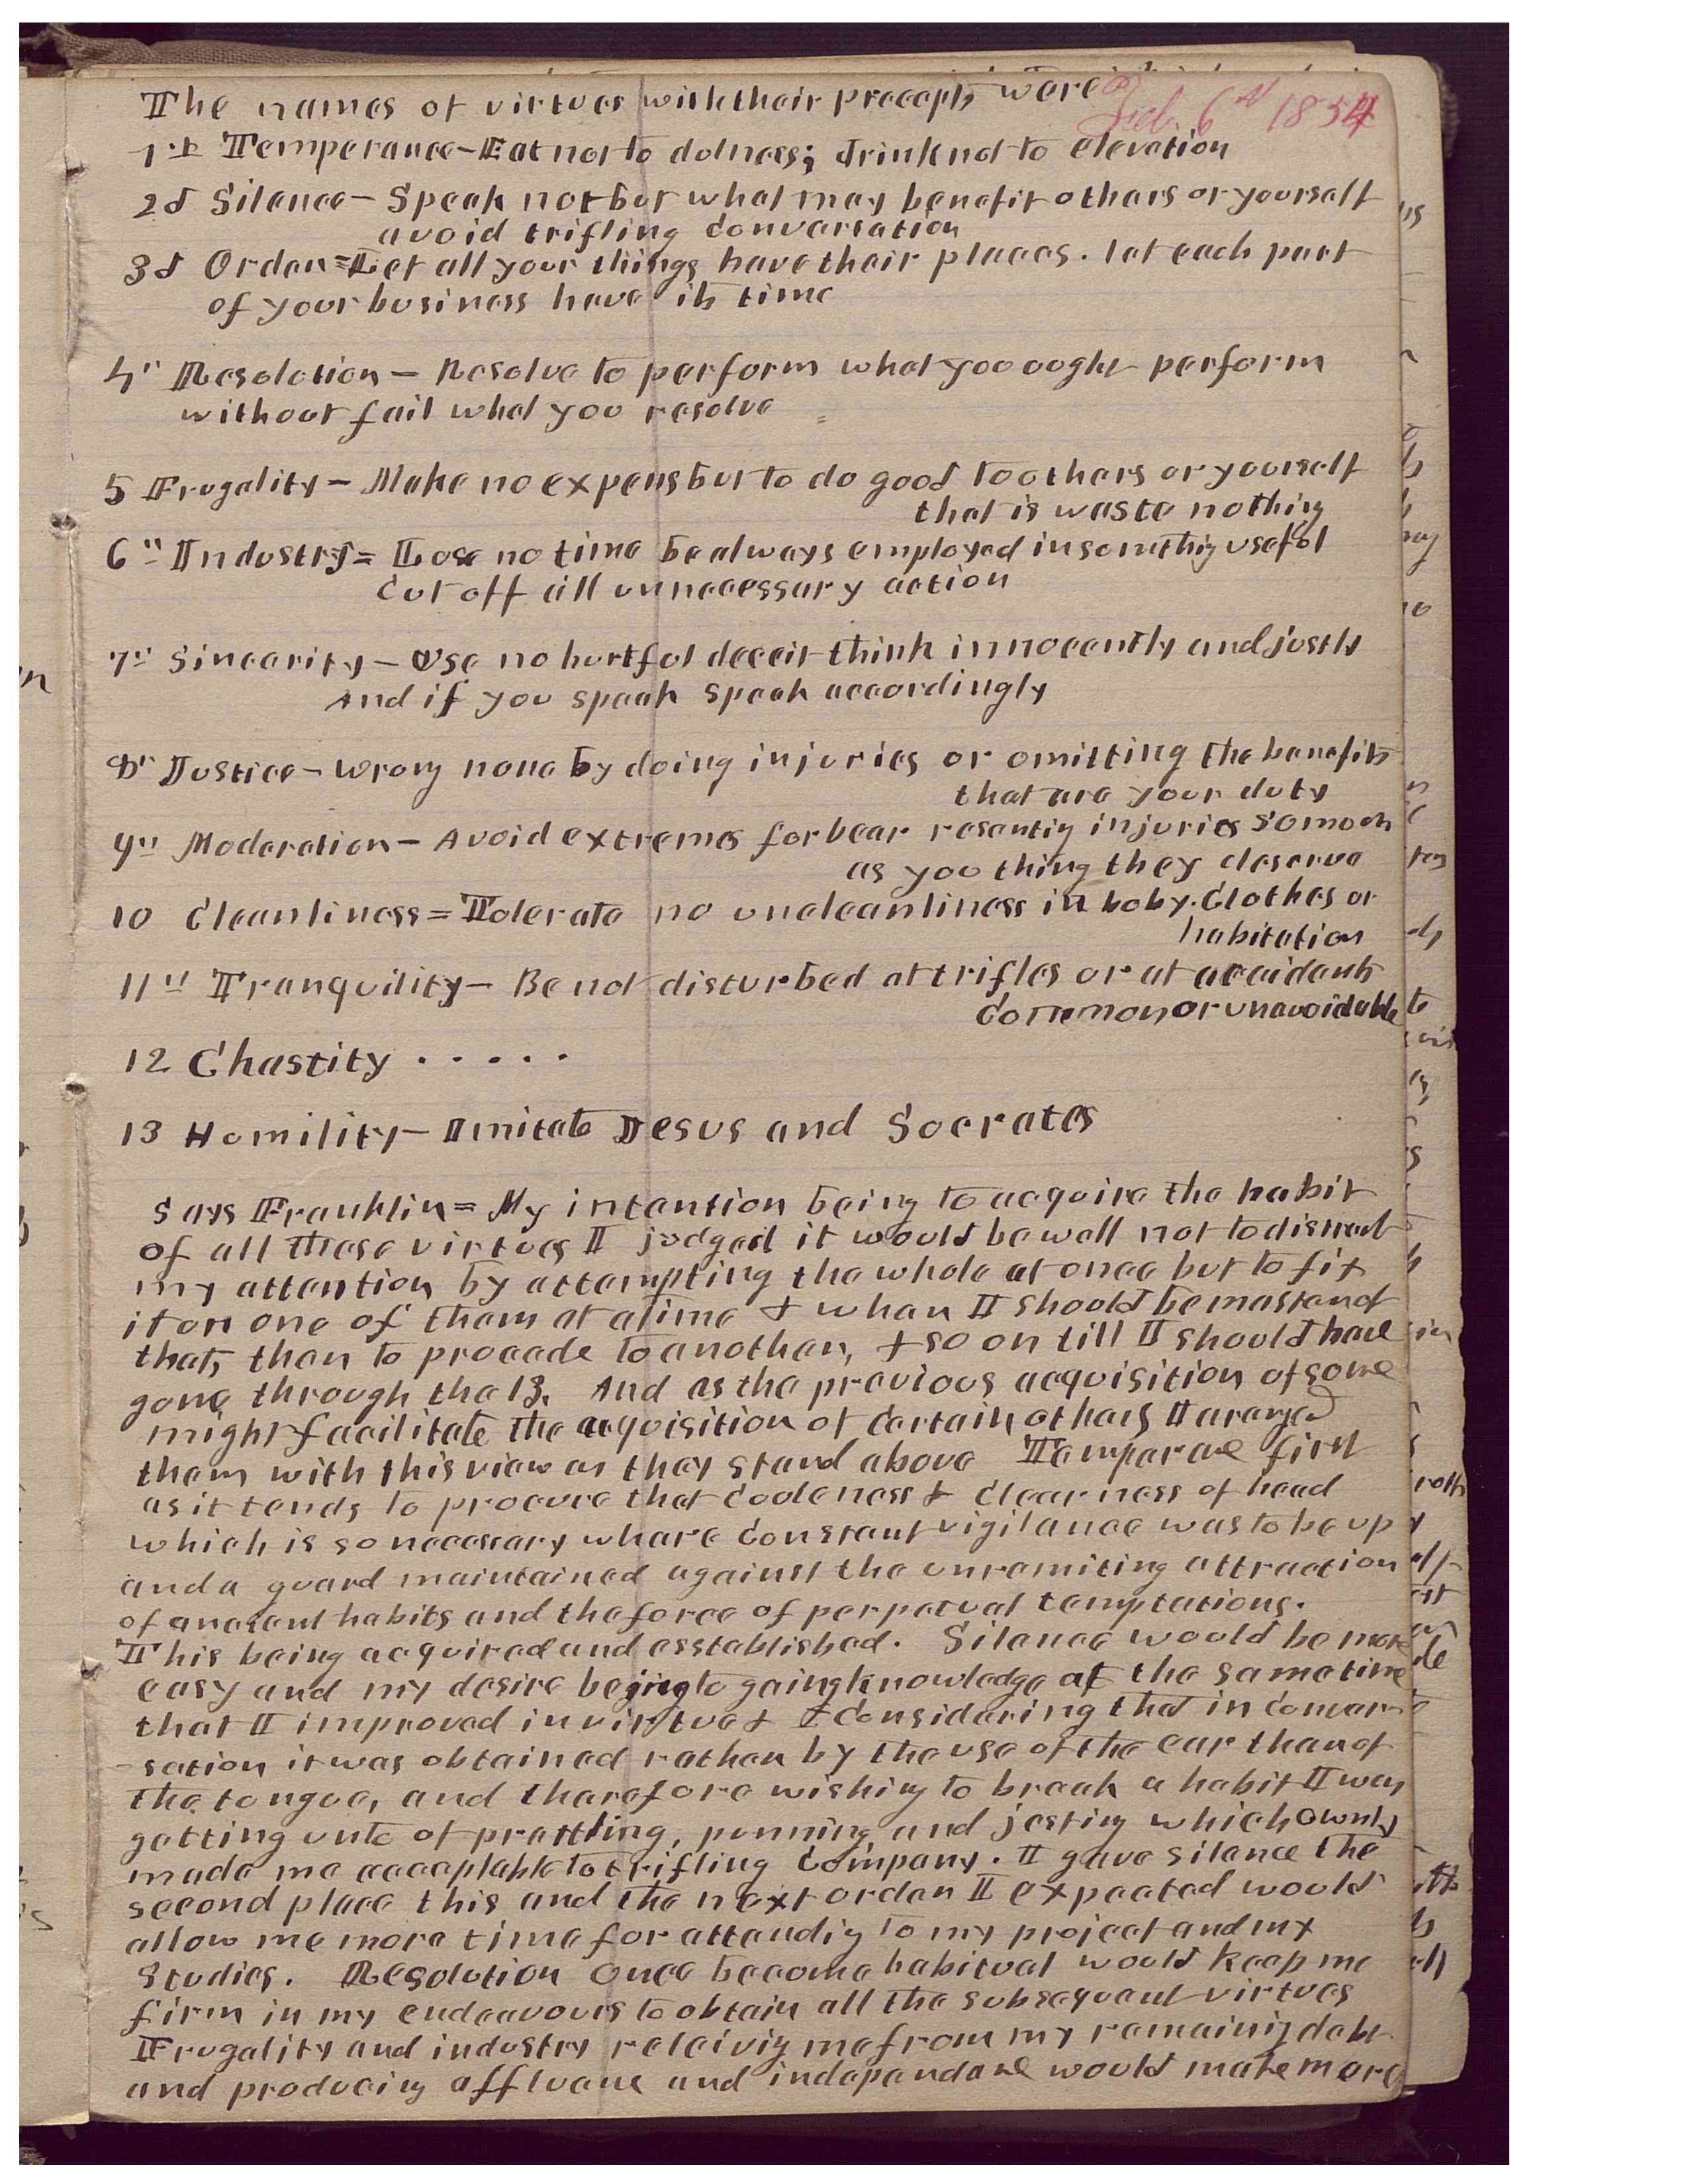 The names of virtues with their precepts were
Feb. 6th 1854
1st Temperance – Eat not to dolness; drink not to elevation
2d Silence – Speak not but what may benefit others or yourself
avoid trifling conversation
3d Order = Let all your things have their places. let each part
of your business have its time
4" Resolution – Resolve to perform what you ought perform
without fail what you resolve
5 Frugality – Make no expens but to do good to others or yourself
that is waste nothing
6" Industry = Lose no time be always employed in somethig useful
Cut off all unnecessary action
7" Sincerity – Use no hurtful deceit think innocently and justly
And if you speak speak accordingly
8" Justice – Wrong none by doing injuries or omitting the benefits
that are your duty
9" Moderation – Avoid extremes forbear resentig injuries so much
as you thing they deserve
10 Cleanliness = Tolerate no uncleanliness in boby. Clothes or
habitation
11" Tranquility – Be not disturbed at trifles or at accidents
Common or unavoidable
12 Chastity . . . . .
13 Humility – Imitate Jesus and Socrates
Says Franklin = My intention being to acquire the habit
of all these virtues I judged it would be well not to distract
my attention by attempting the whole at once but to fix
it on one of them at a time & when I should be
that, then to procede to another, & so on till I should have
gone through the 13. And as the previous acquisition of some
might facilitate the acquisition of certain others I aranged
them with this view as they stand above Temperance first
as it tends to procure that cooleness & clearness of head
which is so necessary where constant vigilance was to be up
and a guard maintained against the unremiting attraction
of ancient habits and the force of perpetual temptations.
This being acquired and esstablished. Silence would be more
easy and my desire being to gaing knowledge at the same time
that I improved in virtue & I considering that in conver-
-sation it was obtained rather by the use of the ear than of
the tongue, and therefore wishing to break a habit I was
getting unto of prattling, punning, and jesting which ownly
made me acceptable to trifling company. I gave silence the
second place this and the next order I expected would
allow me more time for attendig to my project and my
Studies. Resolution once become habitual would keep me
firm in my endeavours to obtain all the subsequent virtues
Frugality and industry releivig me from my remainig debt
and producig affluance and independance would make more